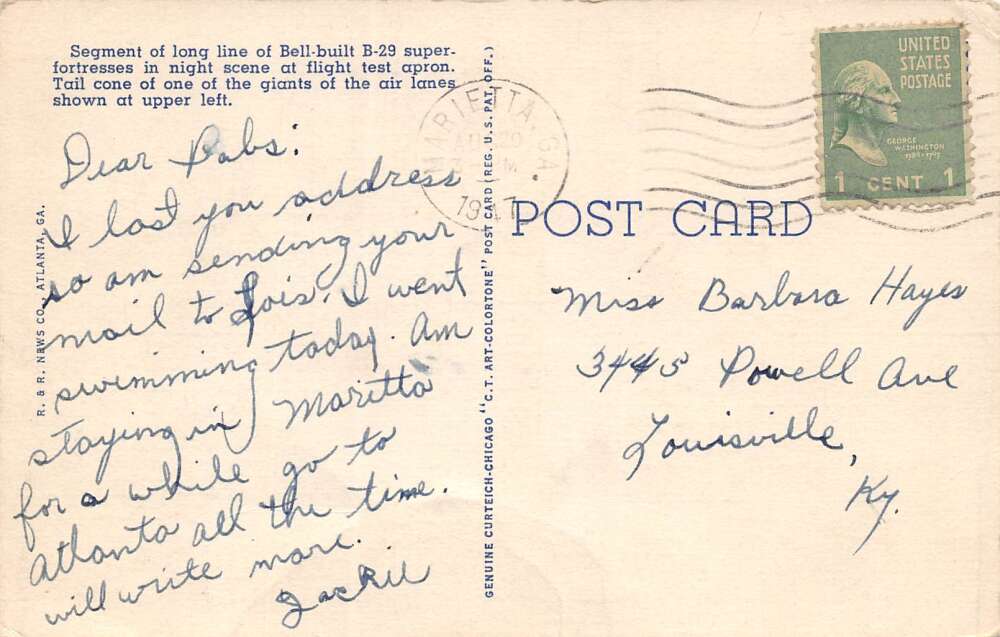 Segment of long line of Bell-built B-29 super-
fortresses in night scene at flight test apron.
Tail cone of one of the giants of the air lanes
shown at upper left.
Dear Babs:
I lost you address
so am sending your
mail to Lois. I went
swimming today. Am
staying in Maritta
for a while go to
Atlanta all the time.
will write more.
Jackie
R. & R. NEWS CO., ATLANTA, GA.
GENUINE CURTEICH-CHICAGO "C.T. ART-COLORTONE" POST CARD (REG. U.S. PAT. OFF.)
MARIETTA, GA.
1947
UNITED
STATES
POSTAGE
GEORGE
WASHINGTON
1 CENT 1
POST CARD
Miss Barbara Hayes
3445 Powell Ave
Louisville,
Ky.